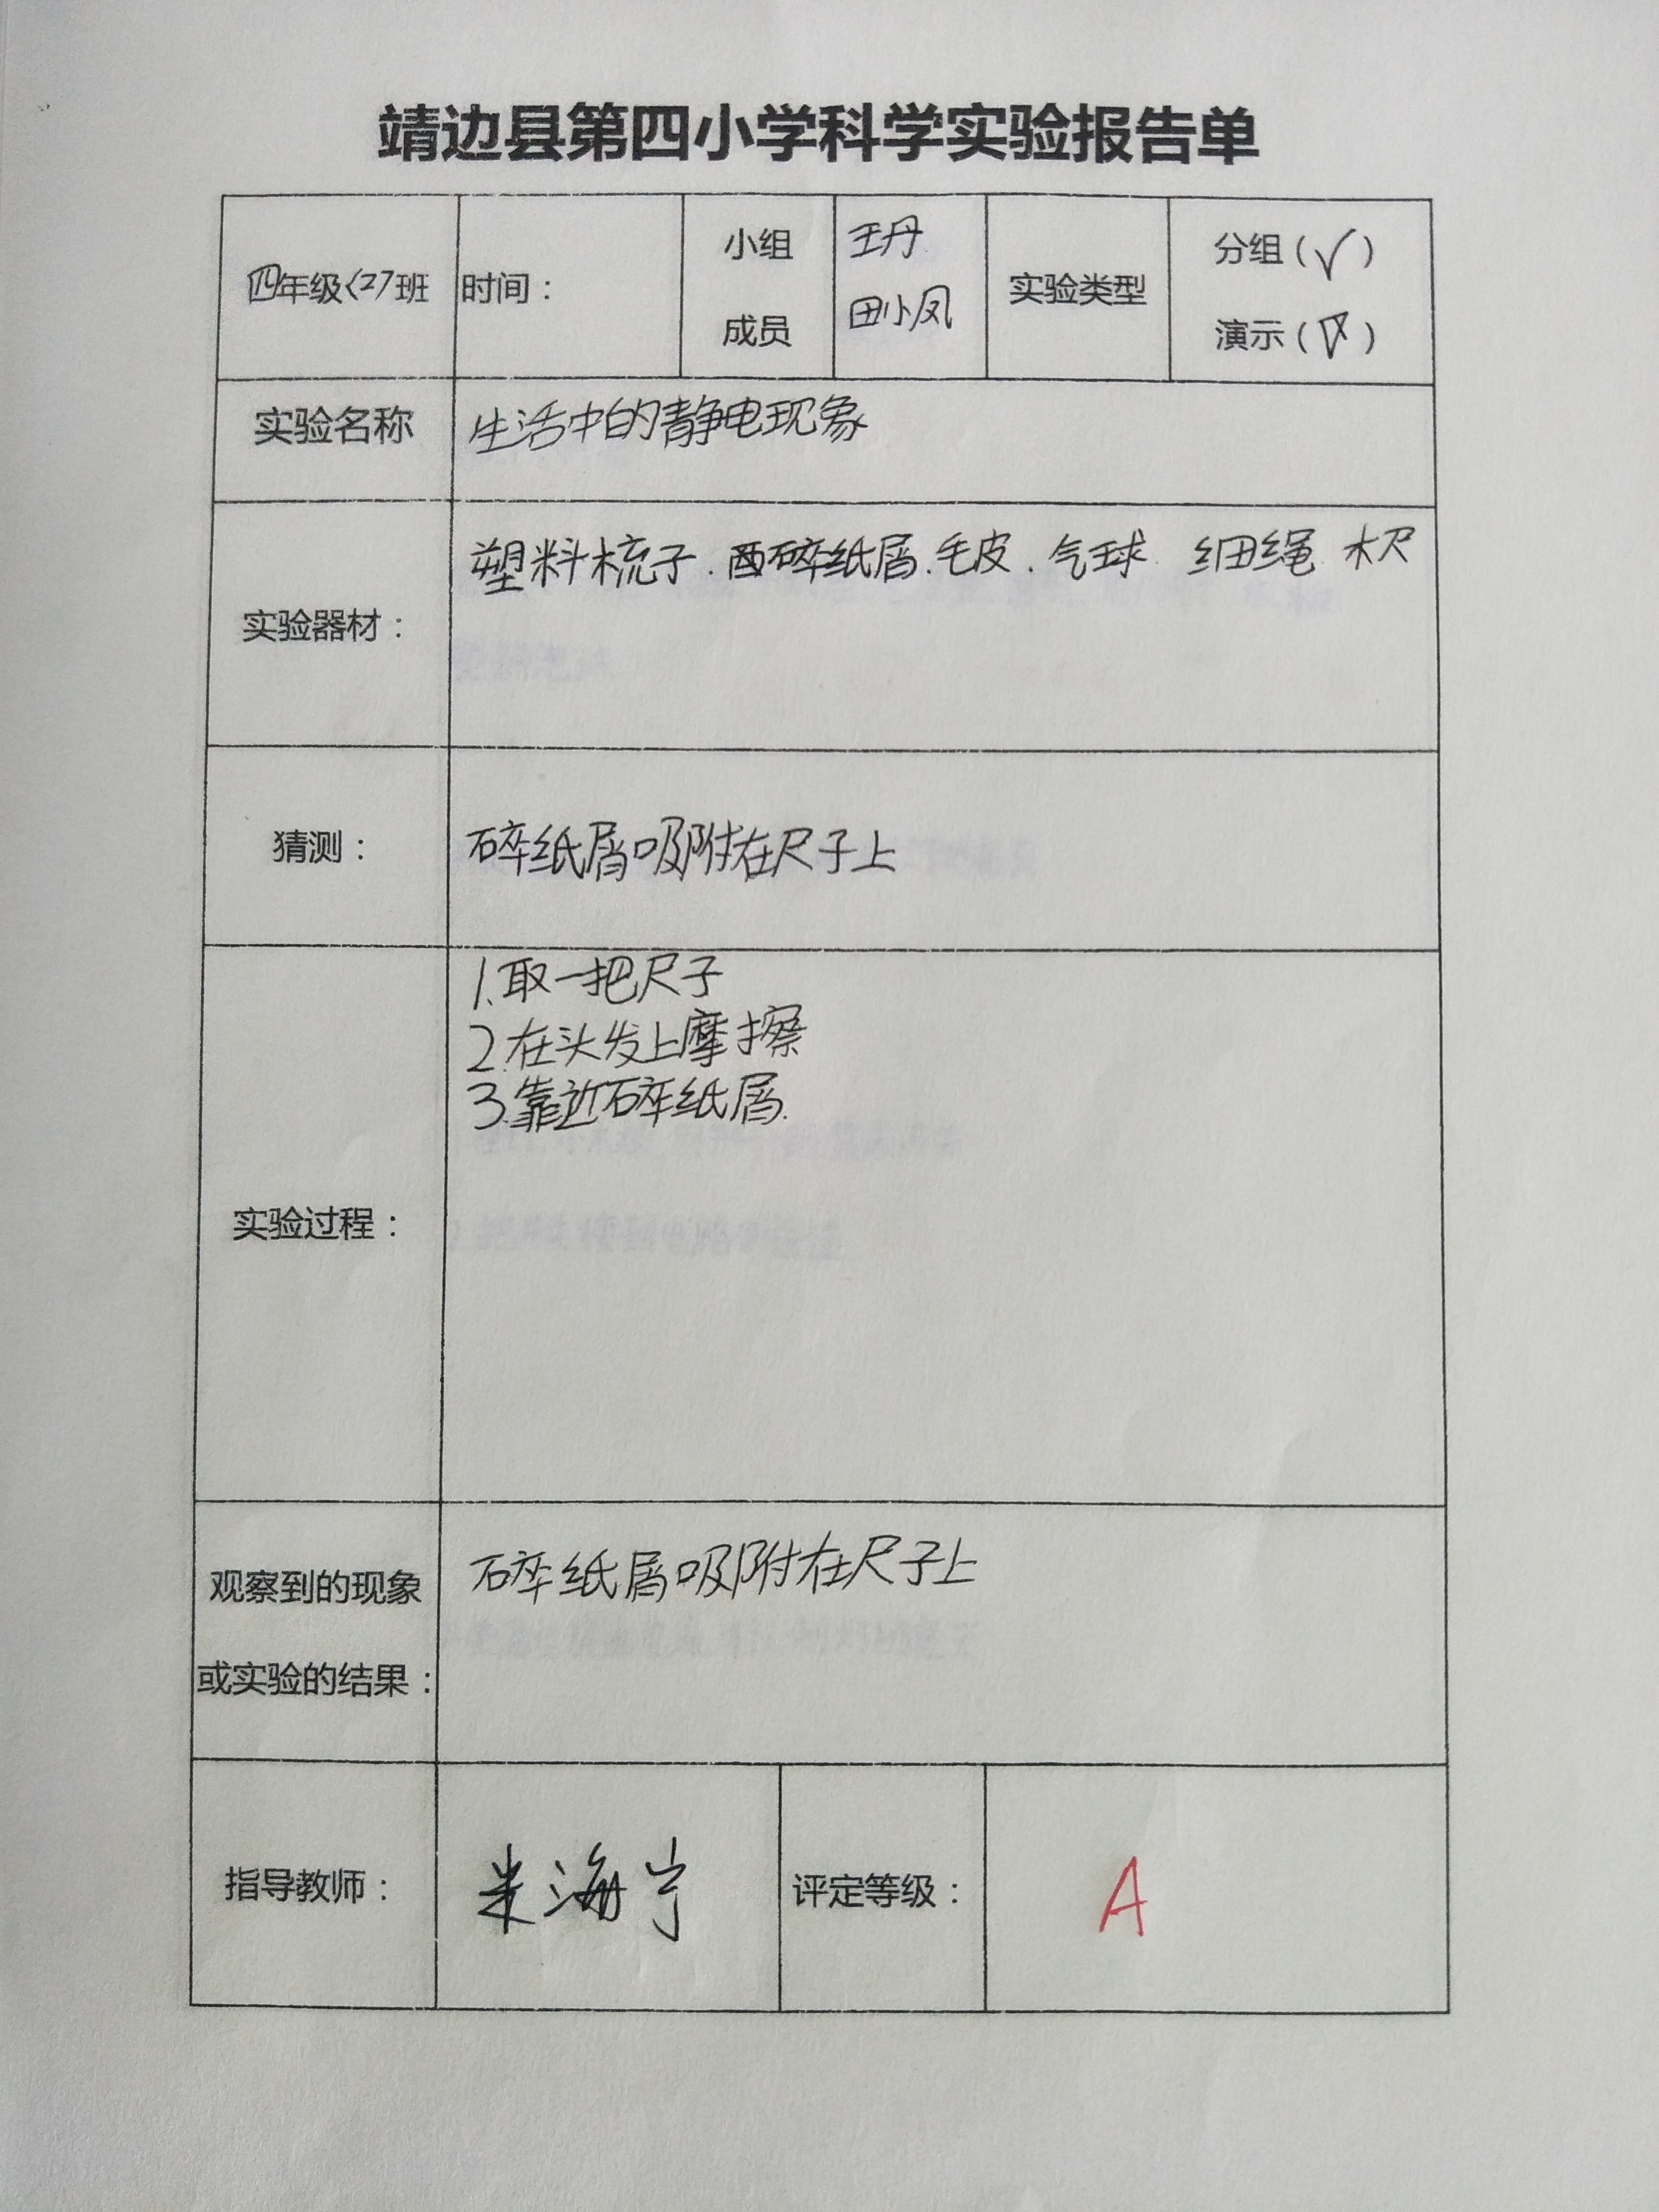 靖边县第四小学科学实验报告单
四年级〈2〉班
时间：
小组
成员
王丹
田小凤
实验类型
分组（√）
演示（ ）
实验名称
生活中的静电现象
实验器材：
塑料梳子.碎纸屑.毛皮.气球 细绳 木尺
猜测：
碎纸屑吸附在尺子上
实验过程：
1.取一把尺子
2.在头发上摩擦
3.靠近碎纸屑.
观察到的现象
或实验的结果：
碎纸屑吸附在尺子上
指导教师：
米海宁
评定等级：
A